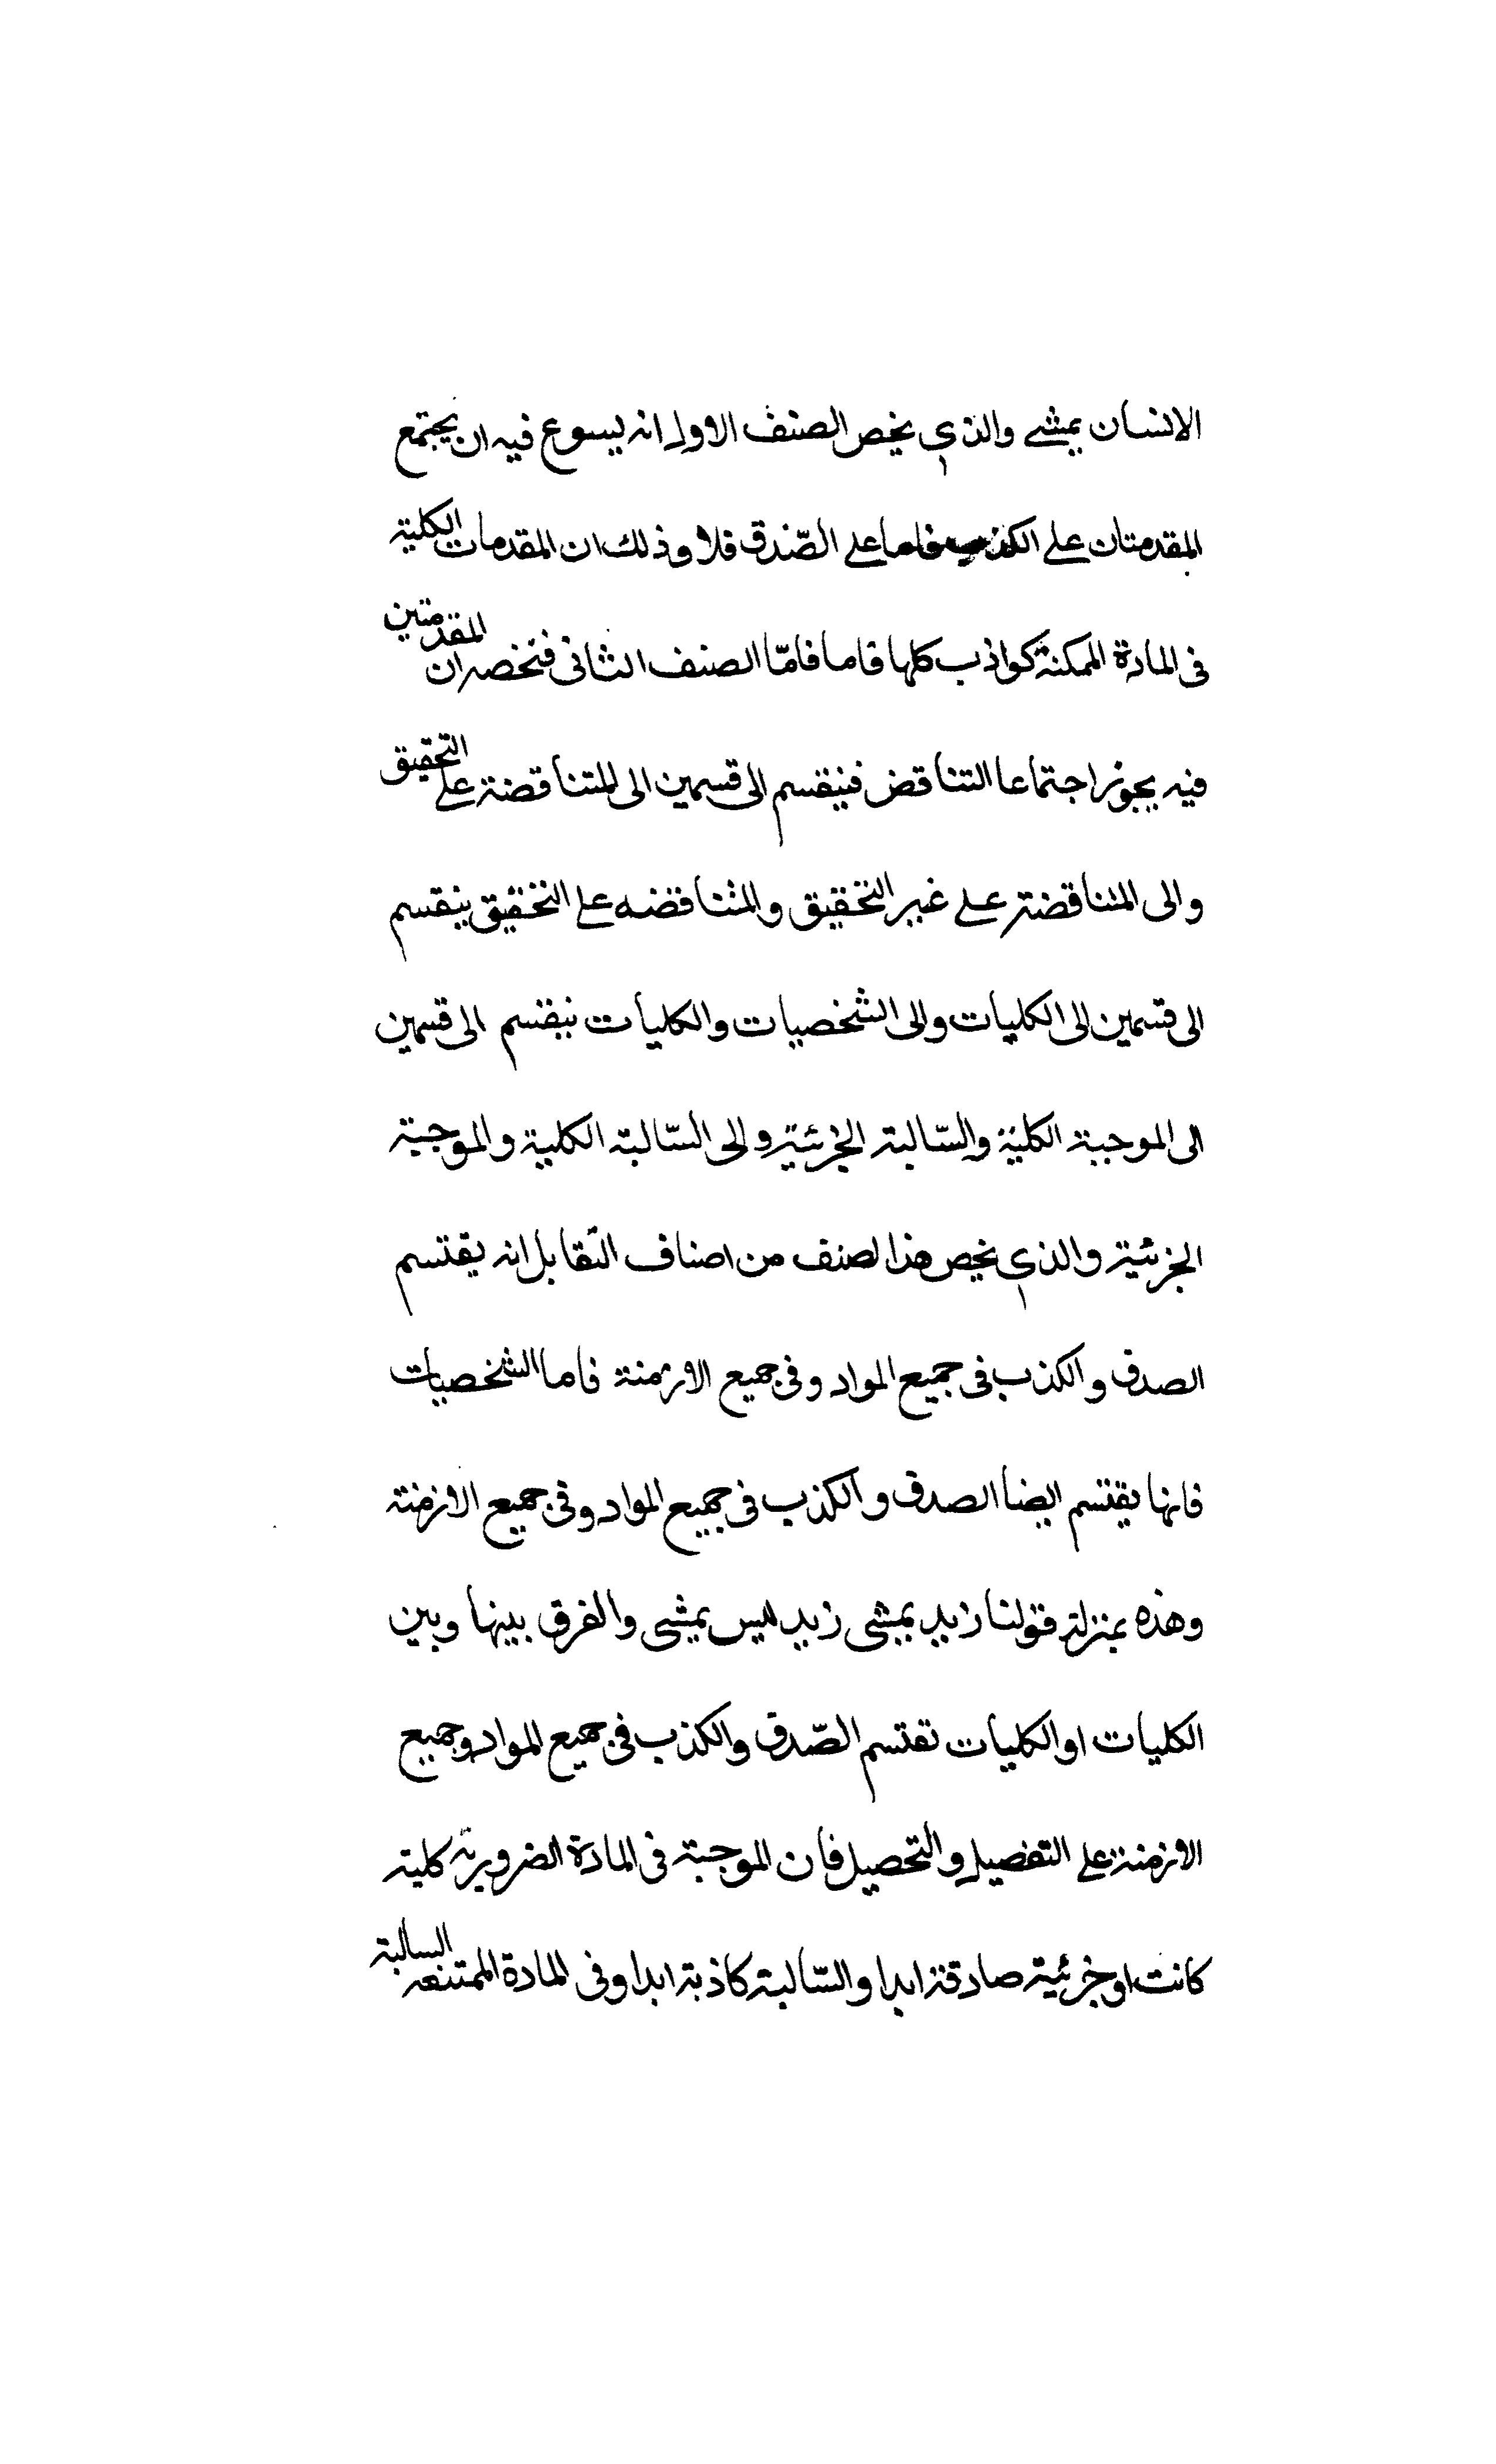 الانسان يمشي والذي يخص الصنف الاول انه يسوع فيه ان يجتمع
المقدمتان على الكذب فاما على الصّدق فلا وذلك ان المقدمات الكلية
فى المادة الممكنة كواذب كلها فاما فامّا الصنف الثانى فتخصه ان المقدمتين
فيه يجوز اجتماعا التناقض فينقسم الى قسمين الى المتناقضة على التحقيق
والى المتناقضة على غير التحقيق والمتناقضه على التحقيق ينقسم
الى قسمين الى الكليات والى الشخصيات والكليات ينقسم الى قسمين
الى الموجبة الكلية والسّالبة الجزئية والى السّالبة الكلية والموجبة
الجزئية والذي يخص هذا لصنف من اصناف التقابل انه يقتسم
الصدق والكذب فى جميع المواد وفى جميع الازمنة فاما الشخصيات
فانها يقتسم ايضا الصدق والكذب فى جميع المواد وفى جميع الازمنة
وهذه بمنزلة قولنا زيد يمشى زيد ليس يمشى والفرق بينها وبين
الكليات او الكليات تقتسم الصّدق والكذب فى جميع المواد وجميع
الازمنة على التفصيل والتحصيل فان الموجبة فى المادة الضرورية كلية
كانت او جزئية صادقة ابدا والسّالبة كاذبة ابدا وفى المادة الممتنعه السالبة